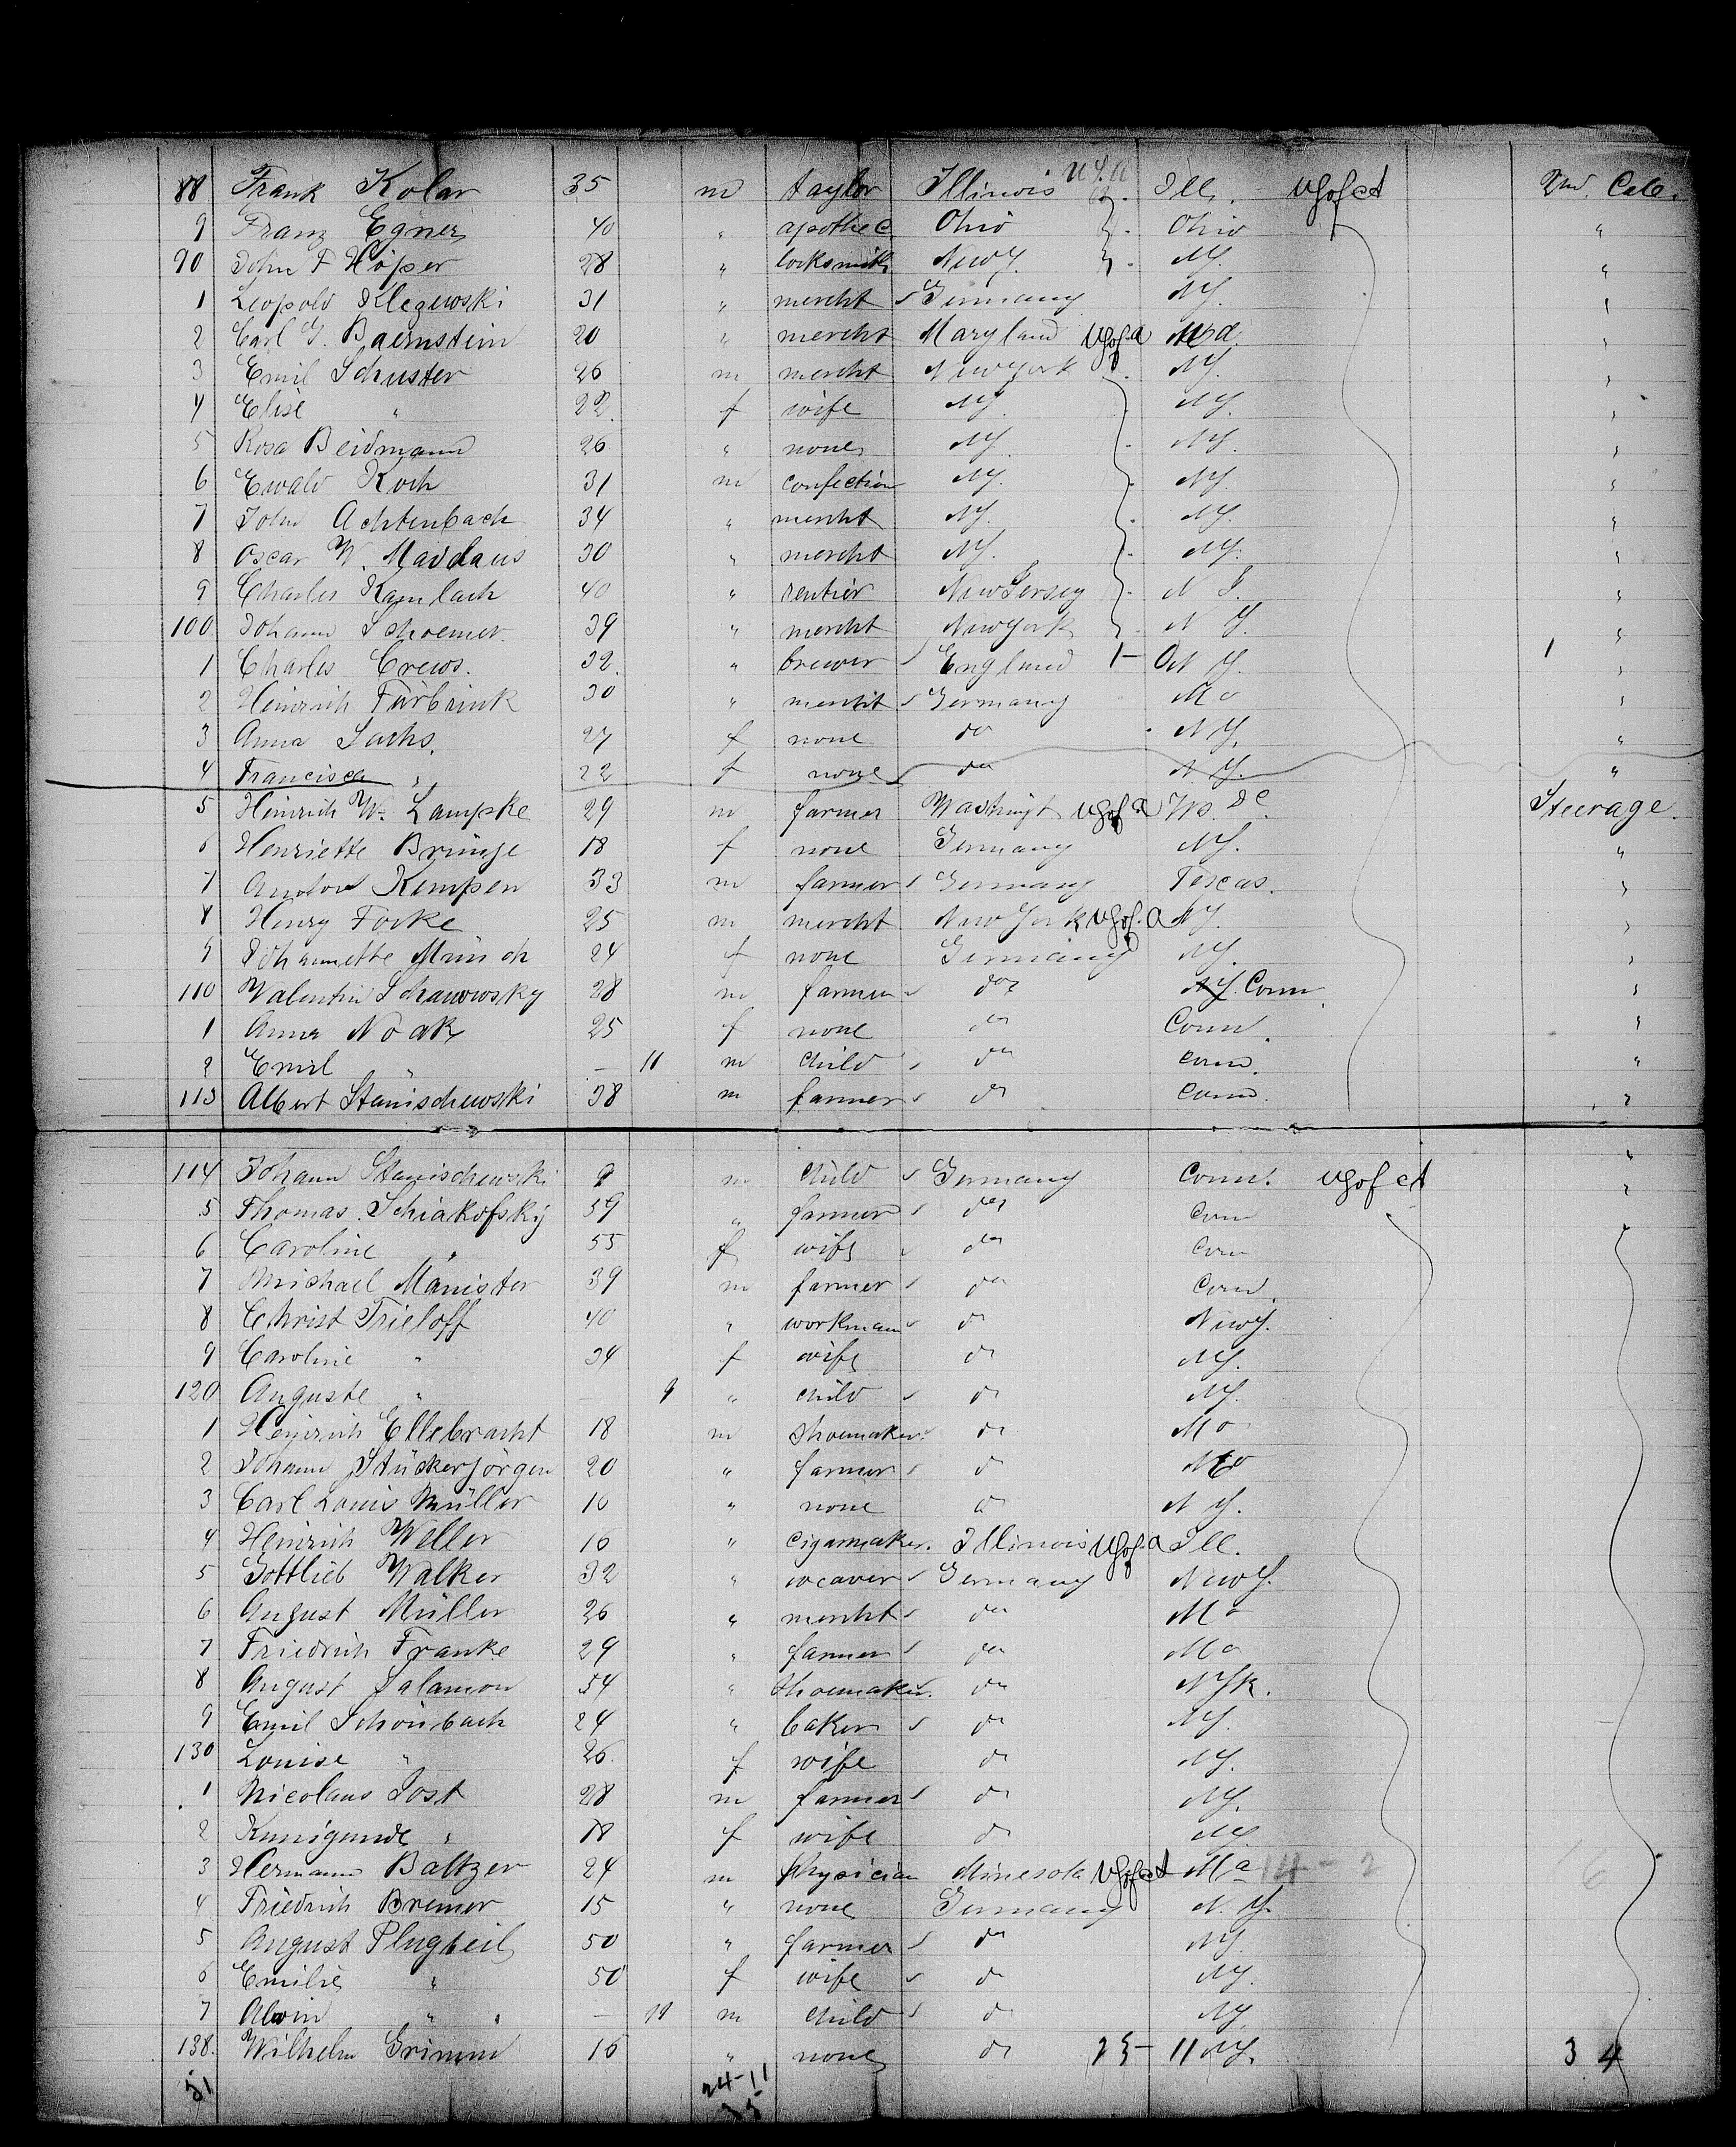 88 Frank Kolar 35 m taylor Illinois U.S.A. Ill. U S of A 2nd. Cab.
9 Franz Egner 40 " apothec Ohio } Ohio "
90 John F Höper 28 " locksmith New Y. } NY. "
1 Leopold 31 " mercht ✓ Germany NY. "
2 Carl G. Baernstein 20 " mercht Maryland U S of A Md. "
3 Emil Schuster 26 m mercht New York NY. "
4 Elise " 22 f wife NY. } NY. "
5 Rosa Beidmann 26 " none NY. NY. "
6 Ewald Koch 31 m confection NY. } NY. "
7 John Achtenbach 34 " mercht NY. } NY. "
8 Oscar W. Maddaus 30 " mercht NY. } NY. "
9 Charles Kamlach 40 " rentier New Jersey } N J. "
100 Johann Schoemer 39 " mercht New York } N Y. "
1 Charles Crews. 32 " brewer ✓ England 1 - 0 N Y. 1 "
2 Heinrich Farbrink 30 " mercht ✓ Germany Mo "
3 Anna Sachs. 27 f none do N Y. "
4 Francisca " 22 f none do N. Y. "
5 Heinrich W. Lampske 29 m farmer Washingt U S of A Ws. DC. Steerage.
6 Henriette Bringe 18 f none Germany NY. "
7 Anton Kempen 33 m farmer ✓ Germany Texas. "
8 Henry Focke 25 m mercht New York U S of A NY. "
9 Johannette Münch 24 f none Germany NY. "
110 Valentin Schanowsky 28 m farmer ✓ do NY. Conn "
1 Anna Noak 25 f none do Conn. "
2 Emil " — 11 m child ✓ do Conn. "
113 Albert Stanischewski 38 m farmer ✓ do Conn. "
114 Johann Stanischewski 9 m child ✓ Germany Conn. U S of A "
5 Thomas Schiakofsky 59 " farmer ✓ do Conn "
6 Caroline " 55 f wife ✓ do Conn "
7 Michael Manister 39 m farmer ✓ do Conn.
8 Christ Trieloff 40 " workman ✓ do New Y.
9 Caroline " 34 f wife do NY.
120 Auguste " — 9 " child ✓ do NY.
1 Heinrich Ellebracht 18 m shoemaker do Mo
2 Johann Stückerjörgen 20 " farmer ✓ do Mo
3 Carl Louis Müller 16 " none do N Y.
4 Heinrich Weller 16 " cigarmaker. Illinois U S of A Ill.
5 Gottlieb Walker 32 " weaver ✓ Germany New Y.
6 August Müller 26 " mercht ✓ do Mo
7 Friedrich Franke 29 " farmer ✓ do Mo
8 August Salamon 54 " shoemaker. do NYk.
9 Emil Schönbach 24 " baker ✓ do NY.
130 Louise " 26. f wife do NY.
1 Nicolaus Jost 28 m farmer ✓ do NY.
2 Kunigunde " 18 f wife do NY.
3 Hermann Baltzer 24 m physician Minesota U S of A Ma 14 - 2 6
4 Friedrich Bremer 15 " none Germany N. Y.
5 August Plugbeil 50 " farmer ✓ do NY.
6 Emilie " 50 f wife ✓ do NY.
7 Alwin " — 11 m child ✓ do NY.
138. Wilhelm Grimm 16 " none do 23 - 11 NY. 3 4
51 24 - 11
35